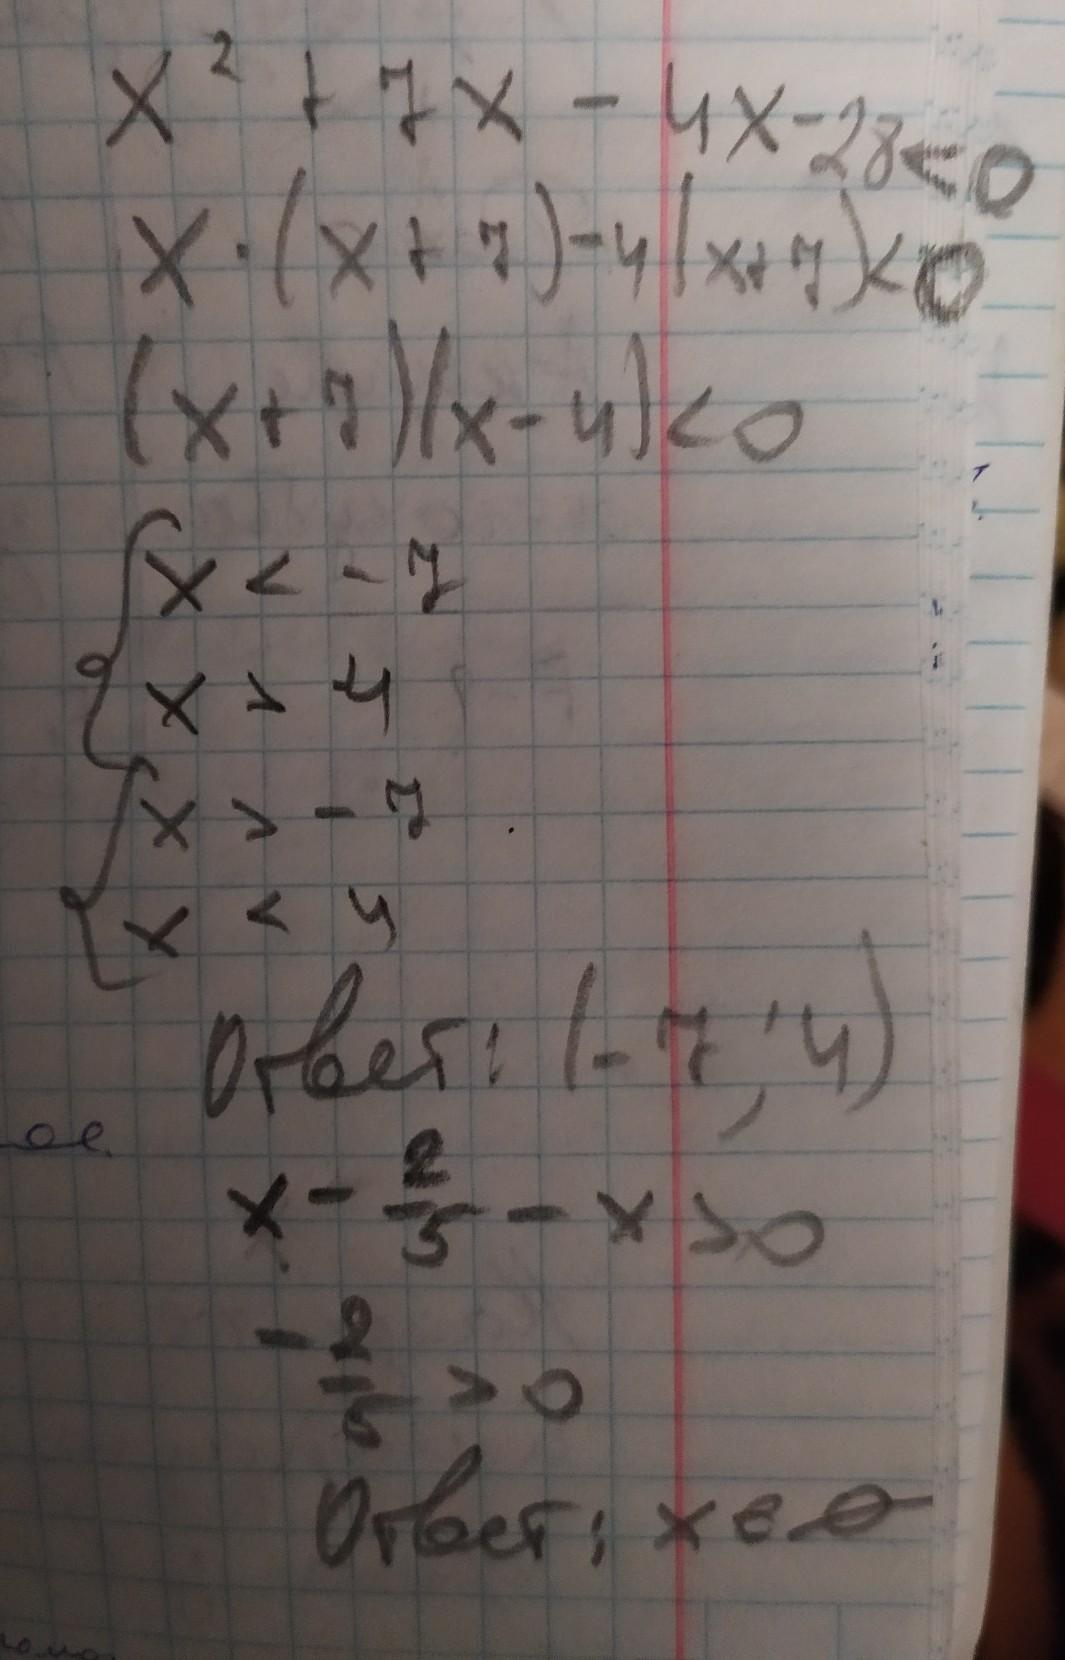 x² + 7x - 4x - 28 < 0
x · (x + 7) - 4(x + 7) < 0
(x + 7)(x - 4) < 0
x < - 7
x > 4
x > - 7
x < 4
Ответ: (-7; 4)
x - 2/5 - x > 0
- 2/5 > 0
Ответ: x ∈ ∅